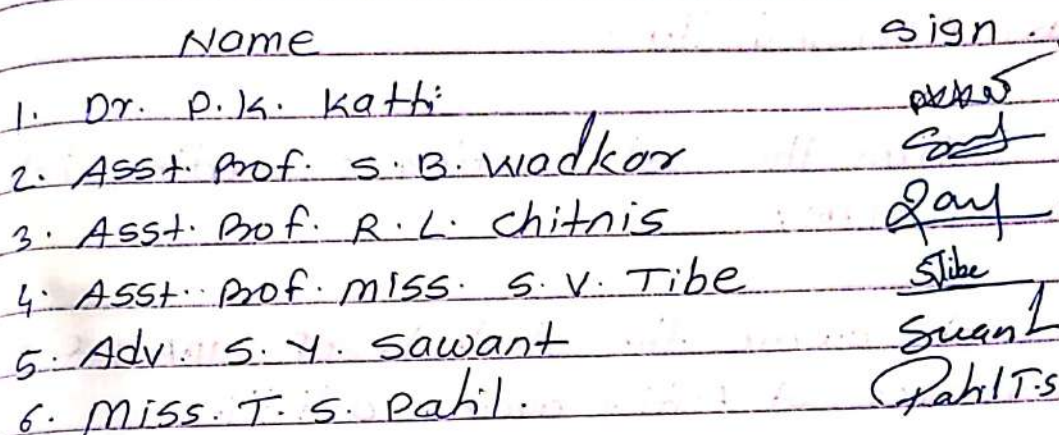 Name sign.
1. Dr. P. K. Kathi
2. Asst. Prof. S. B. Wadkar
3. Asst. Prof. R. L. Chitnis
4. Asst. Prof. Miss. S. V. Tibe STibe
5. Adv. S. Y. Sawant
6. Miss. T. S. Patil. Patil T.S